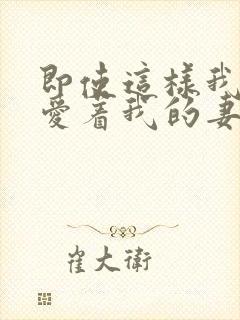 即使這樣我
愛着我的妻
崔大衛